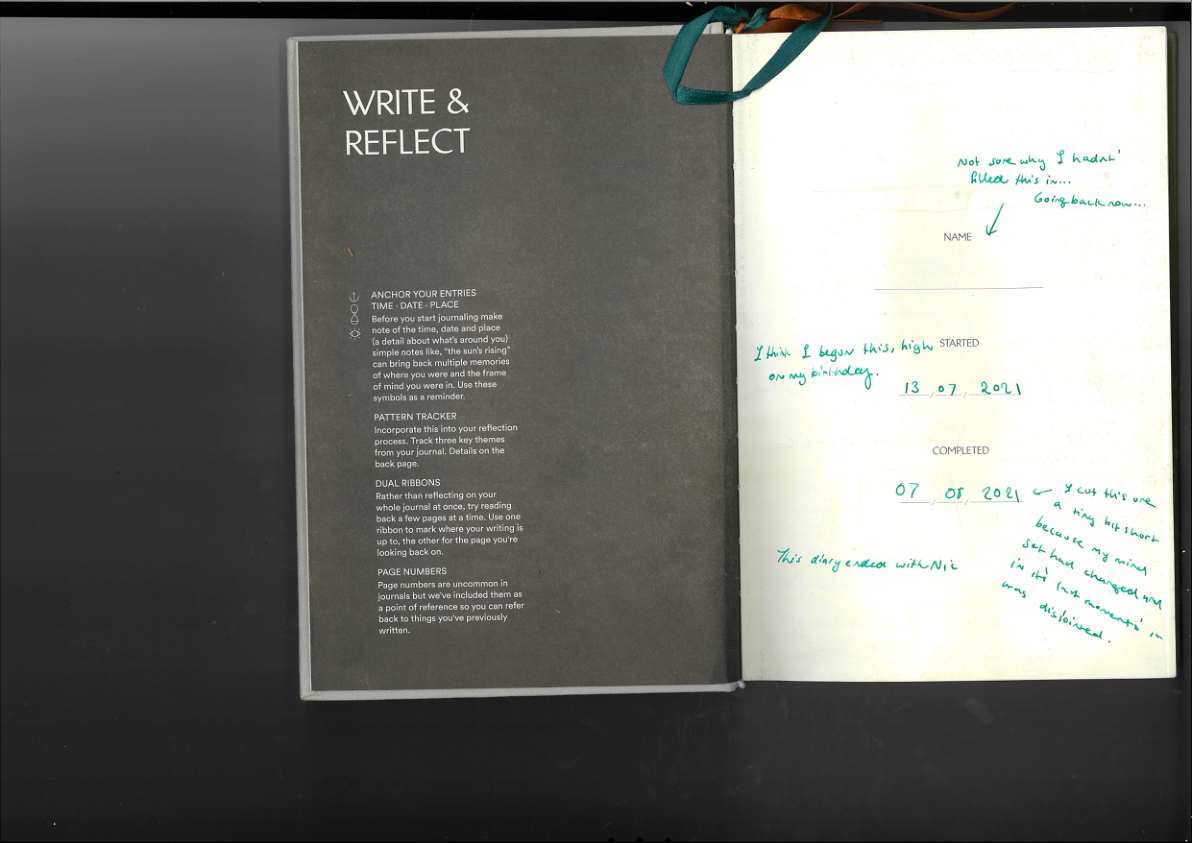 WRITE &
REFLECT
ANCHOR YOUR ENTRIES
TIME - DATE - PLACE
Before you start journaling make
note of the time, date and place
(a detail about what's around you)
simple notes like, "the sun's rising"
can bring back multiple memories
of where you were and the frame
of mind you were in. Use these
symbols as a reminder.
PATTERN TRACKER
Incorporate this into your reflection
process. Track three key themes
from your journal. Details on the
back page.
DUAL RIBBONS
Rather than reflecting on your
whole journal at once, try reading
back a few pages at a time. Use one
ribbon to mark where your writing is
up to, the other for the page you're
looking back on.
PAGE NUMBERS
Page numbers are uncommon in
journals but we've included them as
a point of reference so you can refer
back to things you've previously
written.
Not sure why I hadnt'
filled this in...
Going back now...
NAME
I think I begun this, high
on my birthday.
STARTED
13 / 07 / 2021
COMPLETED
07 / 08 / 2021
I cut this one
a tiny bit short
because my mind
set had changed and
in it's last moments' it
was disjointed.
This diary ended with Nic